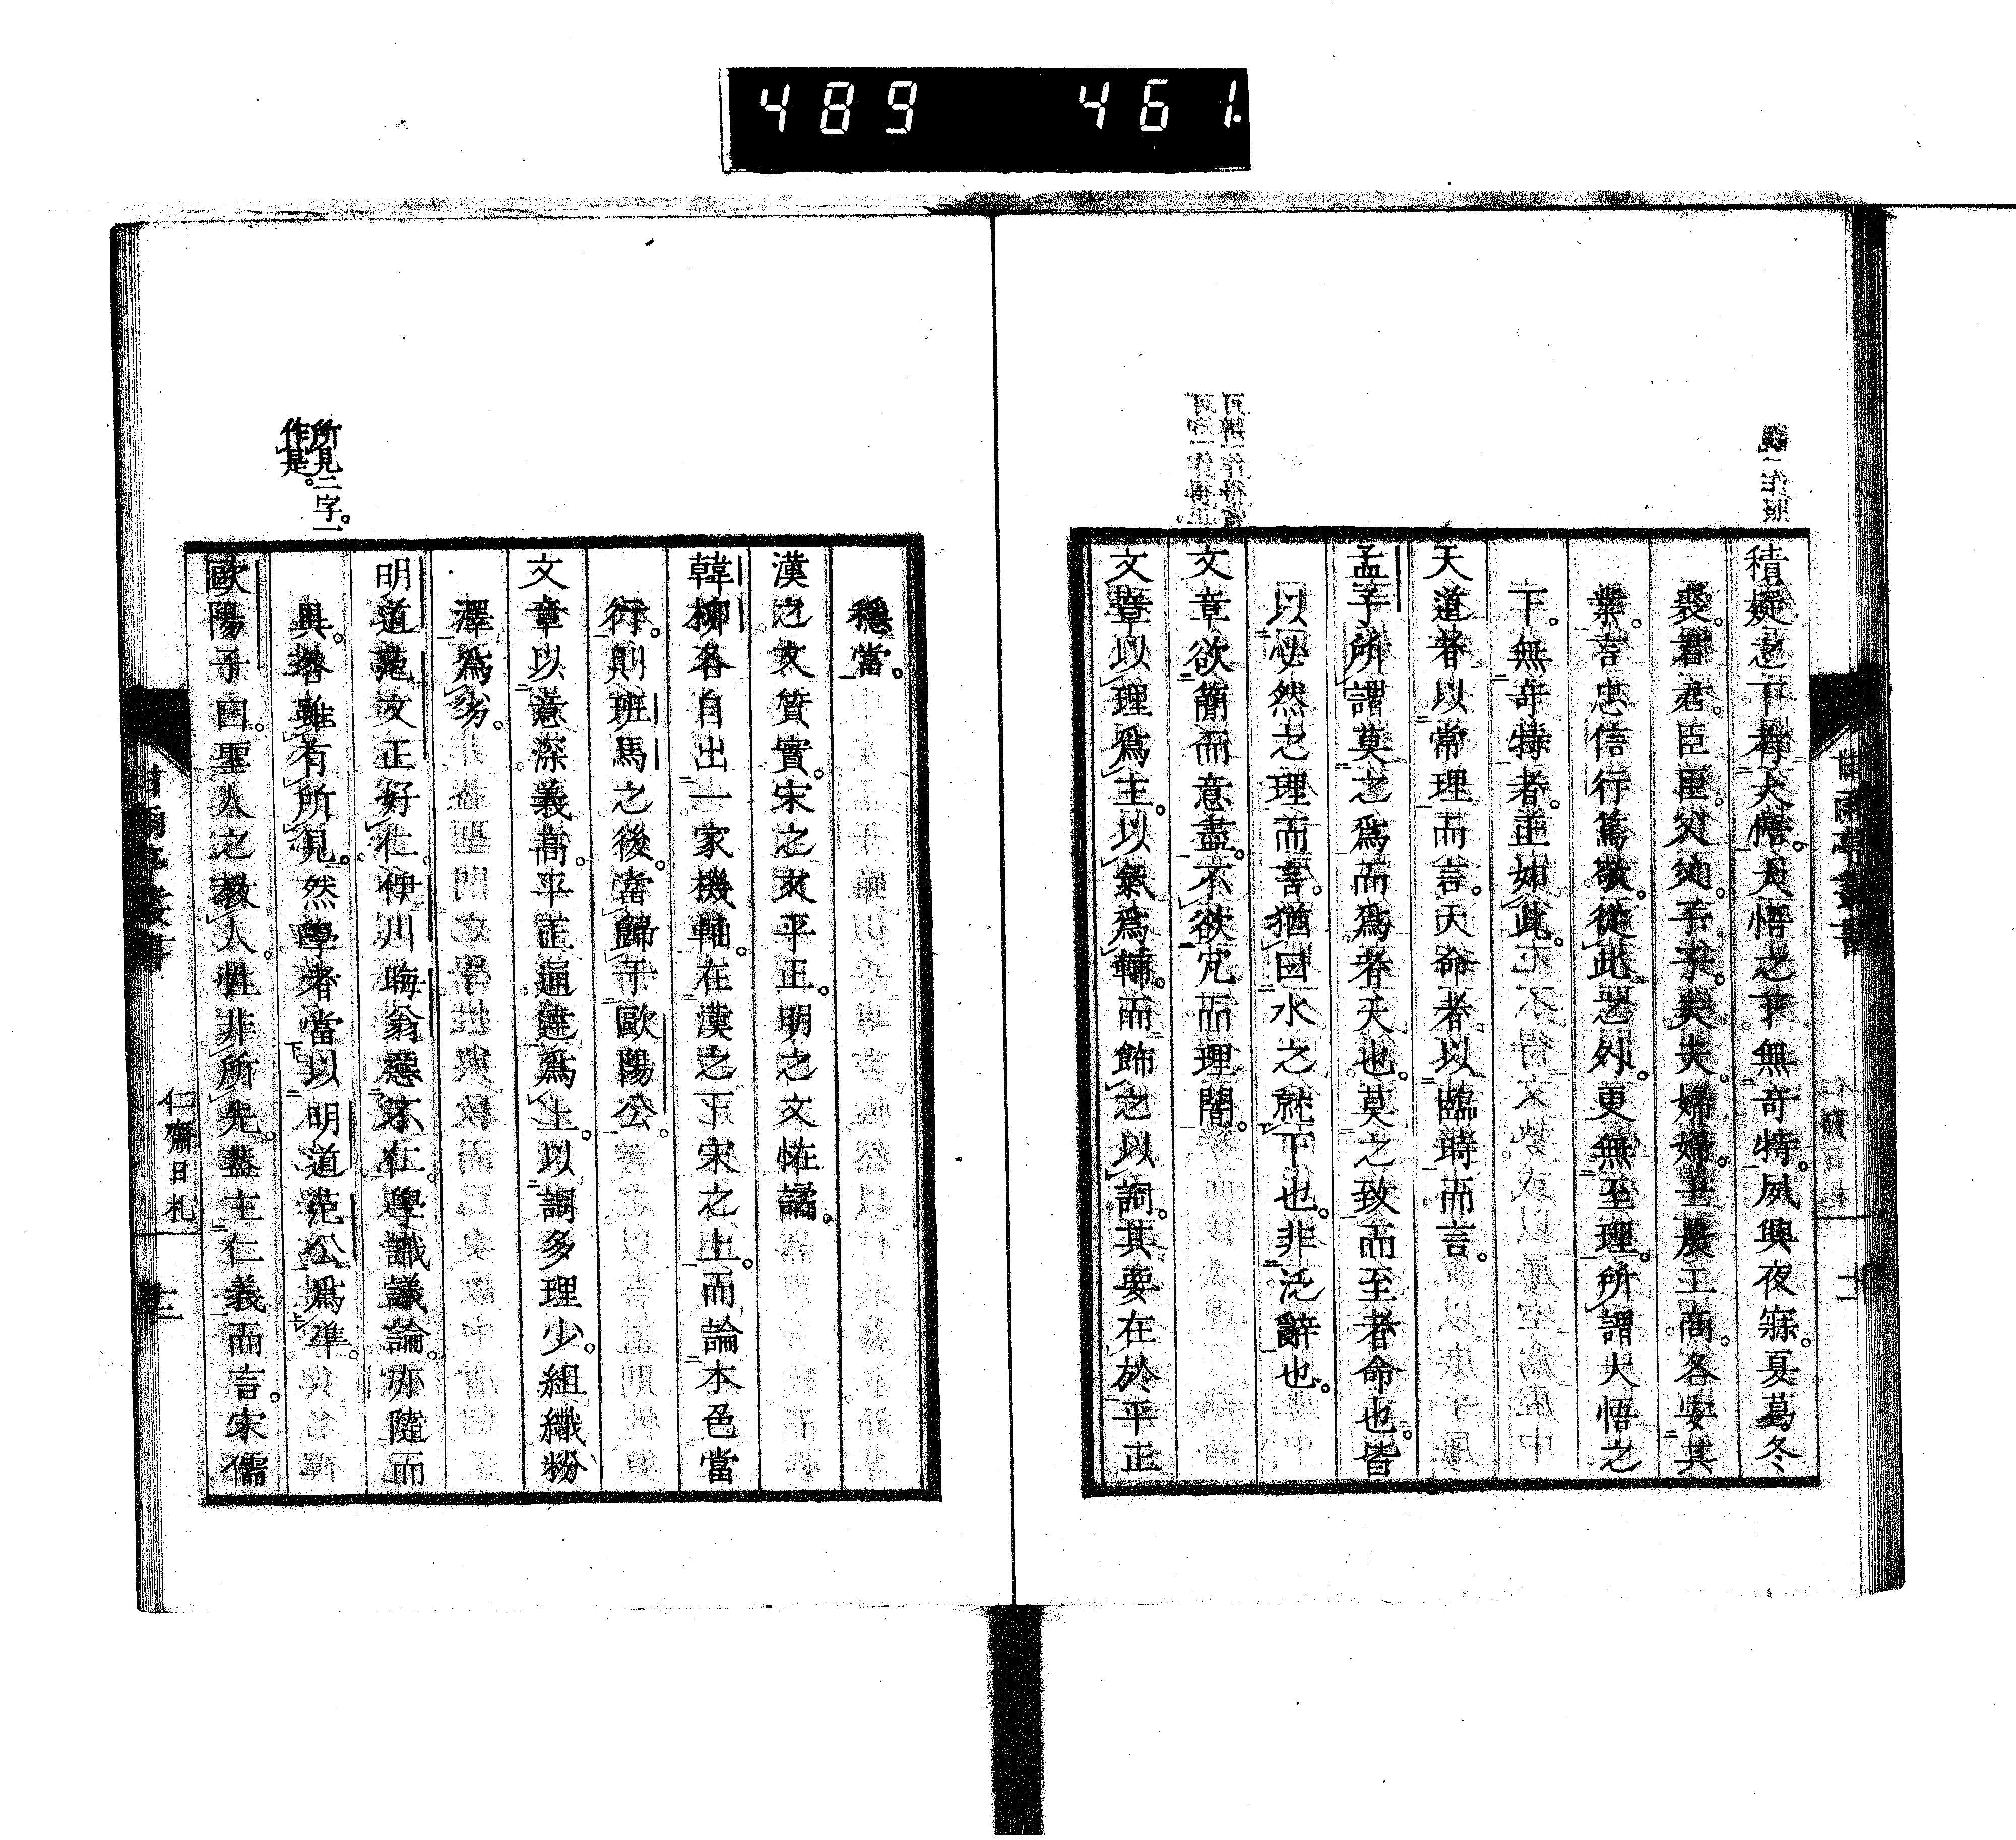 489 461.
積疑之下有大悟。大悟之下無奇特。夙興夜寐。夏葛冬
裘。君君。臣臣。父父。子子。夫夫。婦婦。士農工商。各安其
業。言忠信行篤敬。從此之外。更無至理。所謂大悟之
下。無奇特者。正如此。
天道者。以常理而言。天命者。以臨時而言。
孟子所謂莫之爲而爲者天也。莫之致而至者命也。皆
以必然之理而言。猶曰水之就下也。非泛辭也。
文章欲簡而意盡。不欲冗而理闇。
文章以理爲主。以氣爲輔。而飾之以詞。其要在於平正
穩當。
漢之文質實。宋之文平正。明之文恠譎。
韓柳各自出一家機軸。在漢之下宋之上。而論本色當
行。則班馬之後。當歸于歐陽公。
文章以意深義高。平正通達爲上。以詞多理少。組織粉
澤爲劣。
明道范文正好仁。伊川晦翁惡不仁。學識議論。亦隨而
異。各雖有所見。然學者當以明道范公爲準。
歐陽子曰。聖人之教人。性非所先。蓋主仁義而言。宋儒
所見二字。一
作是。
仁齋日札